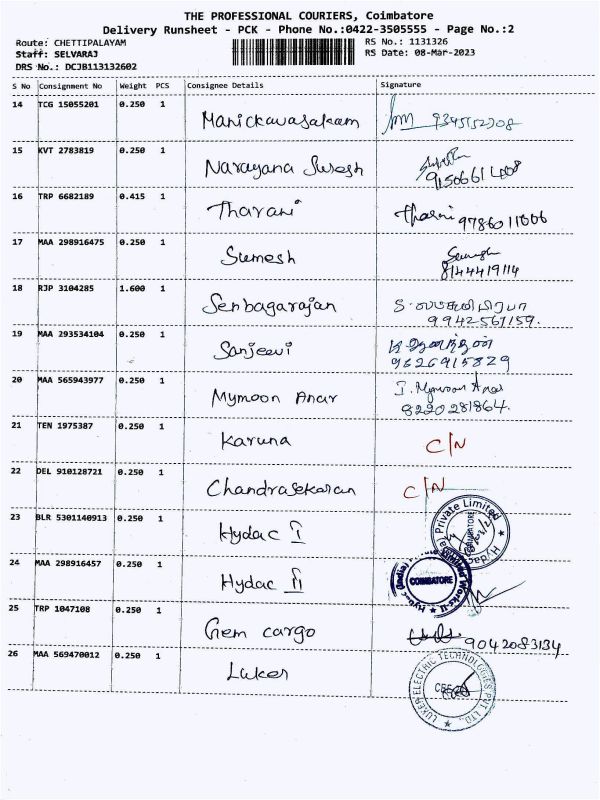 THE PROFESSIONAL COURIERS, Coimbatore
Delivery Runsheet - PCK - Phone No.:0422-3505555 - Page No.:2
Route: CHETTIPALAYAM RS No.: 1131326
Staff: SELVARAJ RS Date: 08-Mar-2023
DRS No.: DCJB113132602
S No Consignment No Weight PCS Consignee Details Signature
14 TCG 15055201 0.250 1 Manickavasakam
15 KVT 2783819 0.250 1 Narayana Suresh
16 TRP 6682189 0.415 1 Tharani Tharni 9786011006
17 MAA 298916475 0.250 1 Sumesh 8144419114
18 RJP 3104285 1.600 1 Senbagarajan 9942561159.
19 MAA 293534104 0.250 1 Sanjeevi 9626915829
20 MAA 565943977 0.250 1 Mymoon Anar I. Mymoon Anar
8220281864.
21 TEN 1975387 0.250 1 Karuna C/N
22 DEL 910128721 0.250 1 Chandrasekaran C/N
23 BLR 5301140913 0.250 1 Hydac I Private Limited COIMBATORE
24 MAA 298916457 0.250 1 Hydac II (India) COIMBATORE
25 TRP 1047108 0.250 1 Gem cargo 9042083134
26 MAA 569470012 0.250 1 Luker LUKER ELECTRIC TECHNOLOGIES PVT LTD.,